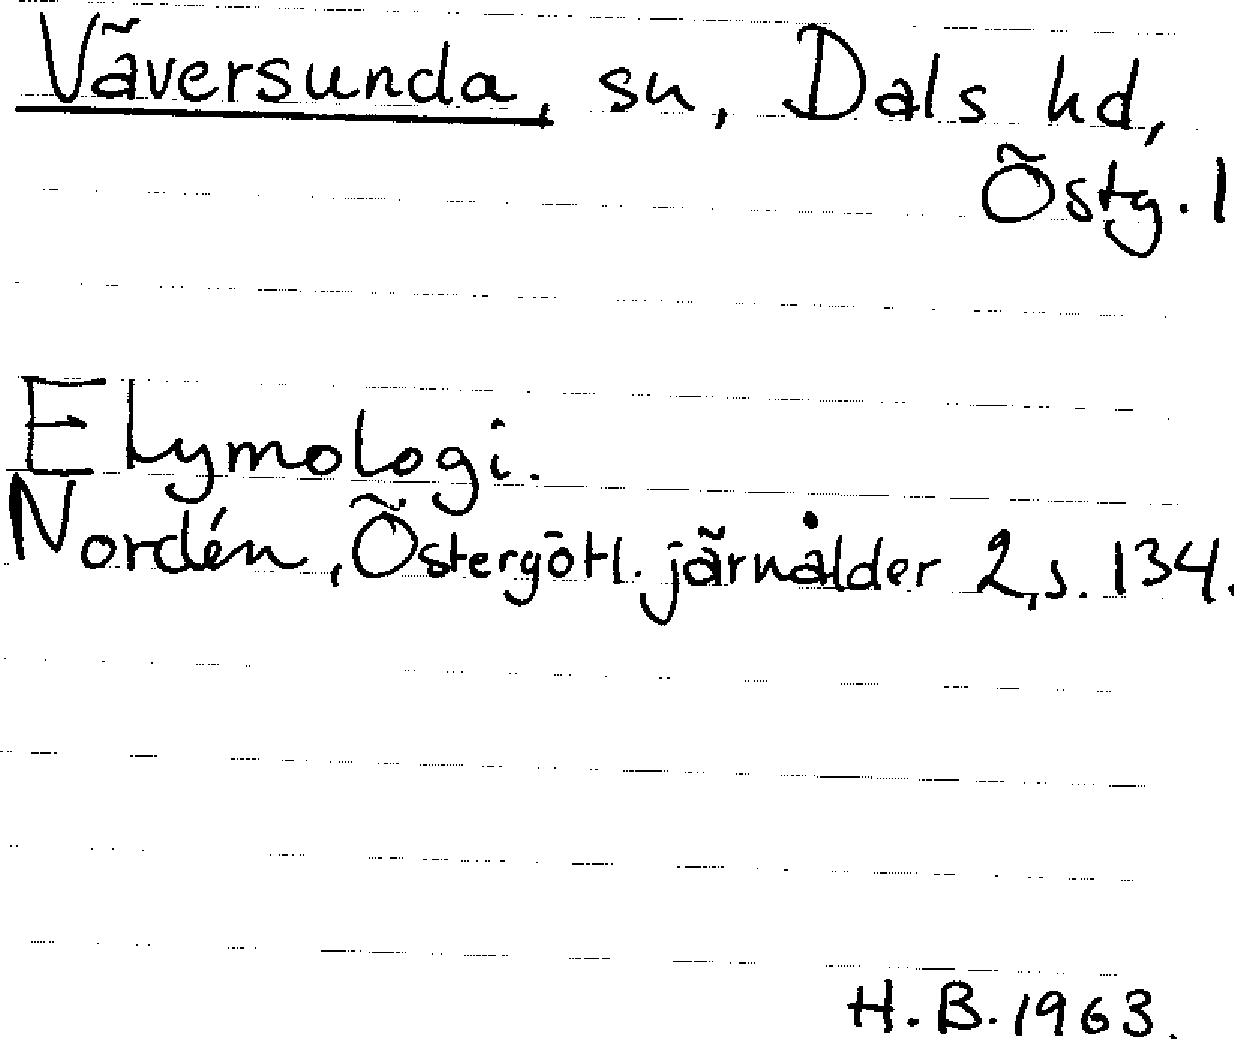 Väversunda, sn, Dals hd,
Östg. l
Etymologi.
Nordén, Östergötl. järnålder 2, s. 134.
H. B. 1963.